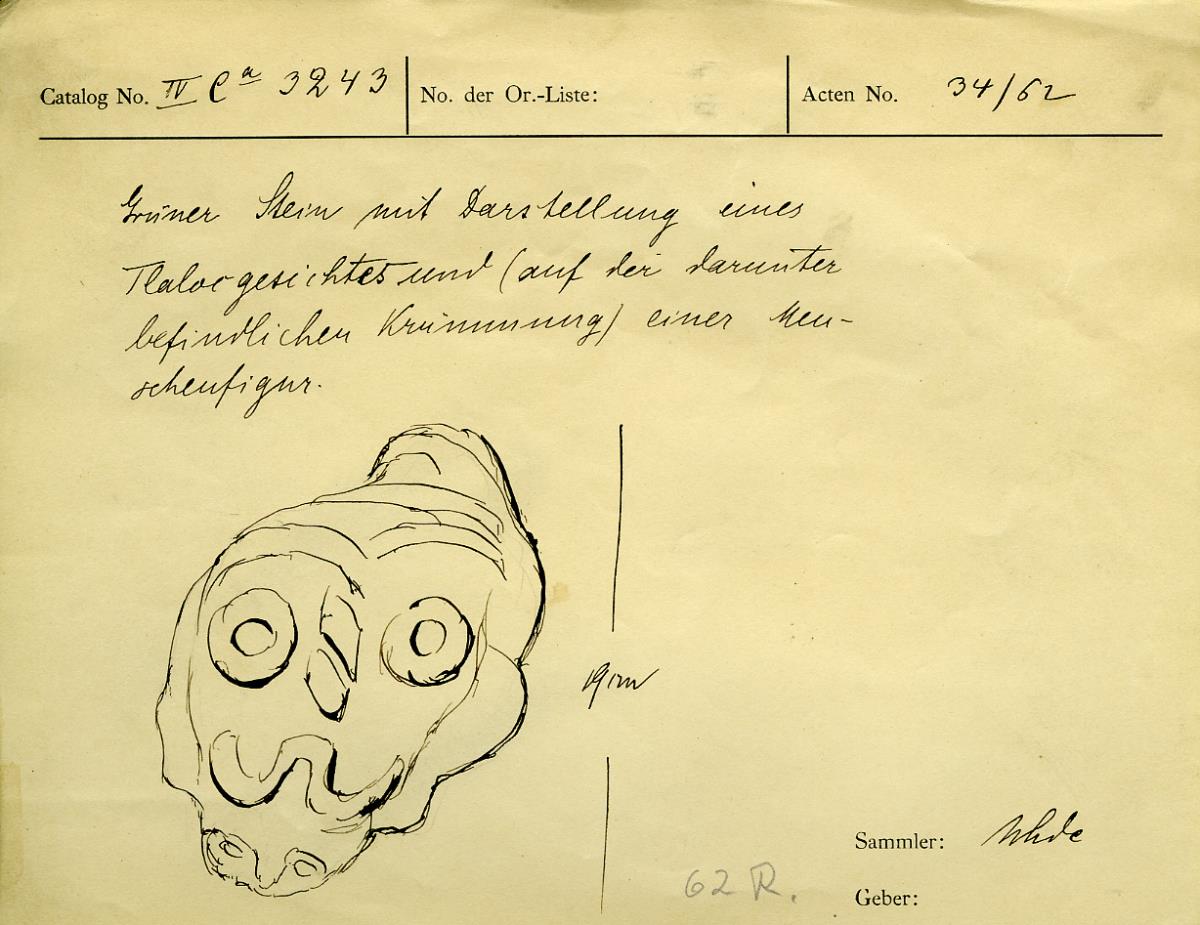 Catalog No. IV Ca 3243 No. der Or.-Liste: Acten No. 34/62
Grüner Stein mit Darstellung eines
Tlalocgesichtes und (auf der darunter
befindlichen Krümmung) einer Men-
schenfigur.
19 cm
Sammler: Uhde
62 R.
Geber: